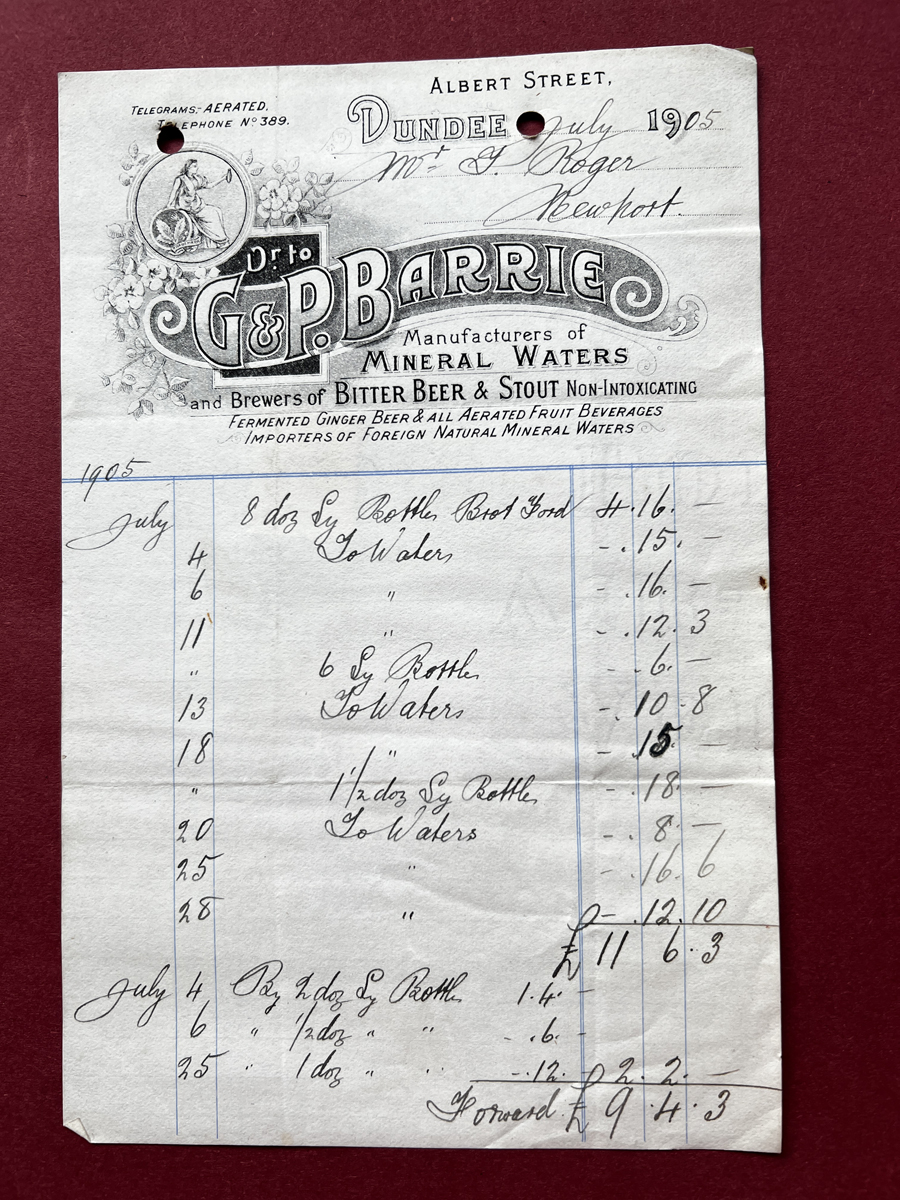 ALBERT STREET,
TELEGRAMS:- AERATED.
TELEPHONE Nº 389.
DUNDEE July 1905
Mr. Roger
Newport.
Dr to
G & P. BARRIE
Manufacturers of
MINERAL WATERS
and Brewers of BITTER BEER & STOUT NON-INTOXICATING
FERMENTED GINGER BEER & ALL AERATED FRUIT BEVERAGES
IMPORTERS OF FOREIGN NATURAL MINERAL WATERS
1905
July 8 doz Sy Bottles Brot Ford 4.16. —
4 To Waters - .15. —
6 " - .16. —
11 " - .12. 3
" 6 Sy Bottles - .6. —
13 To Waters - .10 .8
18 " - .15. —
" 1 1/2 doz Sy Bottles - .18. —
20 To Waters - . 8. —
25 " - .16. 6
28 " - .12. 10
£ 11 6. 3
July 4 By 2 doz Sy Bottles 1.4. -
6 " 1/2 doz " " - .6. -
25 " 1 doz " " - .12. - 2. 2. —
Forward £ 9 .4. 3